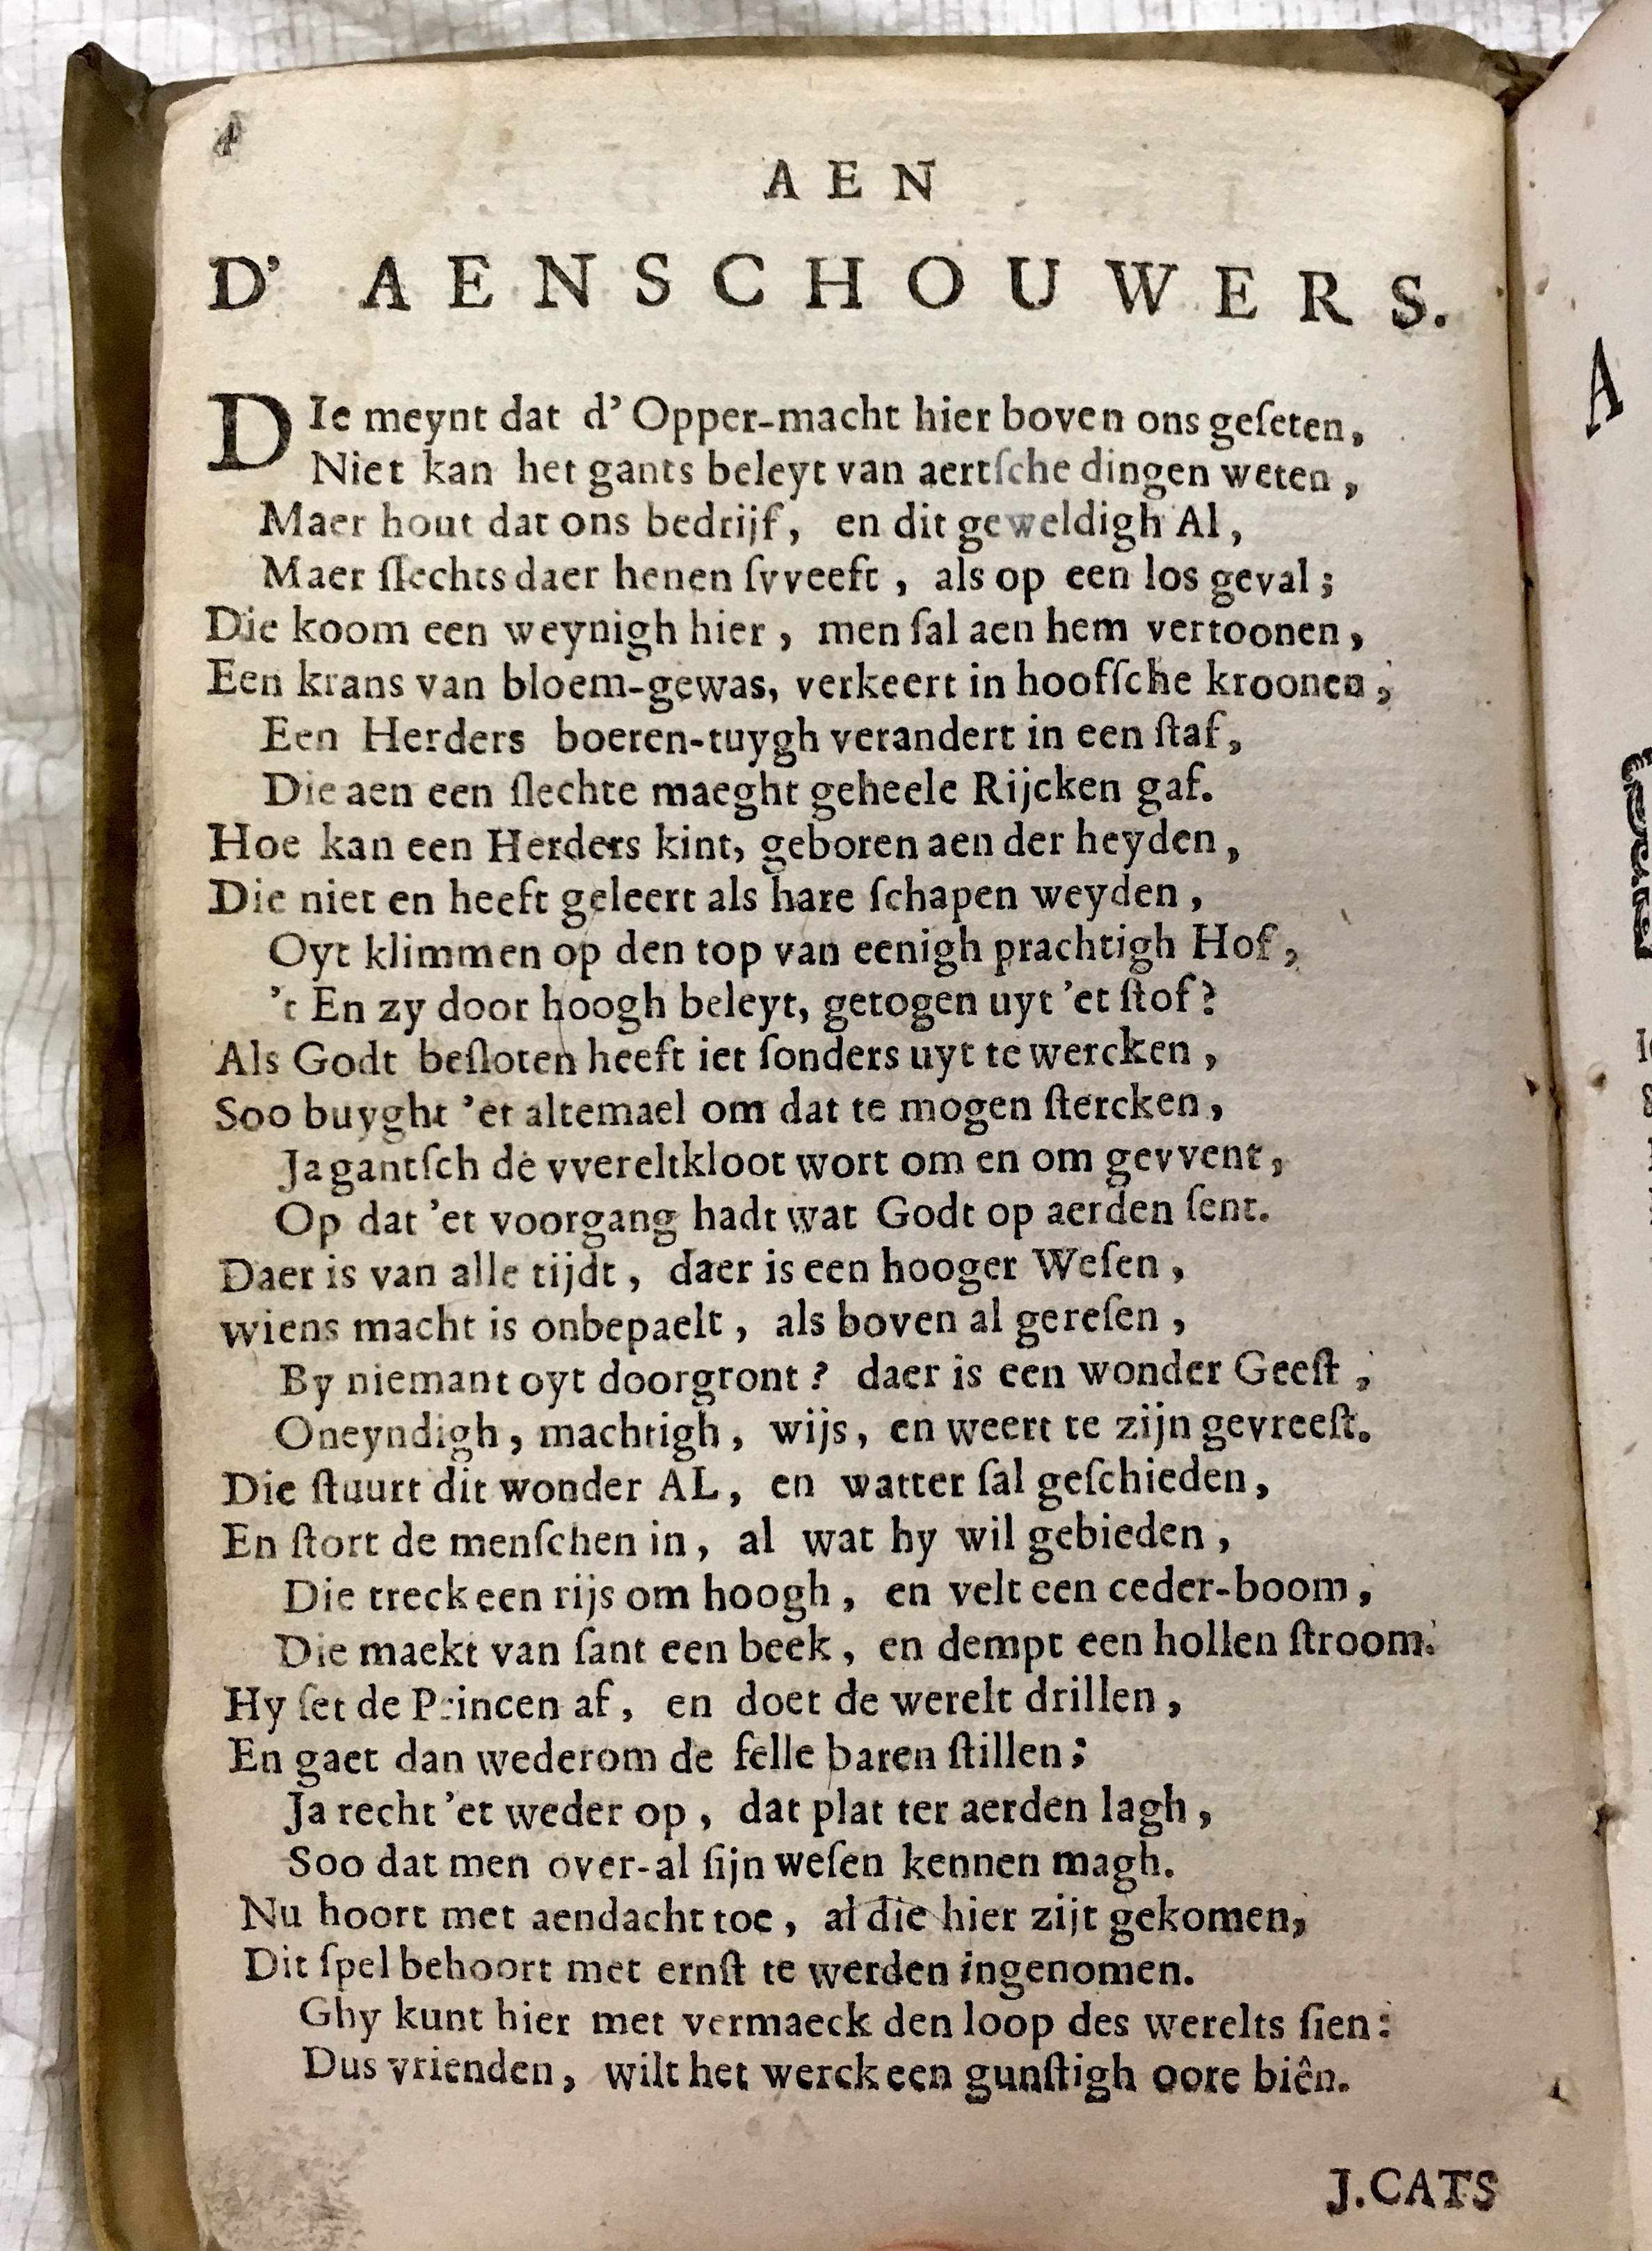 4
AEN
D' AENSCHOUWERS.
DIe meynt dat d' Opper-macht hier boven ons geſeten,
Niet kan het gants beleyt van aertſche dingen weten,
Maer hout dat ons bedrijf, en dit geweldigh Al,
Maer ſlechts daer henen ſvveeft, als op een los geval;
Die koom een weynigh hier, men ſal aen hem vertoonen,
Een krans van bloem-gewas, verkeert in hoofſche kroonen,
Een Herders boeren-tuygh verandert in een ſtaf,
Die aen een ſlechte maeght geheele Rijcken gaf.
Hoe kan een Herders kint, geboren aen der heyden,
Die niet en heeft geleert als hare ſchapen weyden,
Oyt klimmen op den top van eenigh prachtigh Hof,
't En zy door hoogh beleyt, getogen uyt 'et ſtof?
Als Godt beſloten heeft iet ſonders uyt te wercken,
Soo buyght 'et altemael om dat te mogen ſtercken,
Ja gantſch de vvereltkloot wort om en om gevvent,
Op dat 'et voorgang hadt wat Godt op aerden ſent.
Daer is van alle tijdt, daer is een hooger Weſen,
wiens macht is onbepaelt, als boven al gereſen,
By niemant oyt doorgront? daer is een wonder Geeſt,
Oneyndigh, machtigh, wijs, en weert te zijn gevreeſt.
Die ſtuurt dit wonder AL, en watter ſal geſchieden,
En ſtort de menſchen in, al wat hy wil gebieden,
Die treck een rijs om hoogh, en velt een ceder-boom,
Die maekt van ſant een beek, en dempt een hollen ſtroom.
Hy ſet de Princen af, en doet de werelt drillen,
En gaet dan wederom de felle baren ſtillen;
Ja recht 'et weder op, dat plat ter aerden lagh,
Soo dat men over-al ſijn weſen kennen magh.
Nu hoort met aendacht toe, al die hier zijt gekomen,
Dit ſpel behoort met ernſt te werden ingenomen.
Ghy kunt hier met vermaeck den loop des werelts ſien:
Dus vrienden, wilt het werck een gunſtigh oore biên.
J.CATS
A